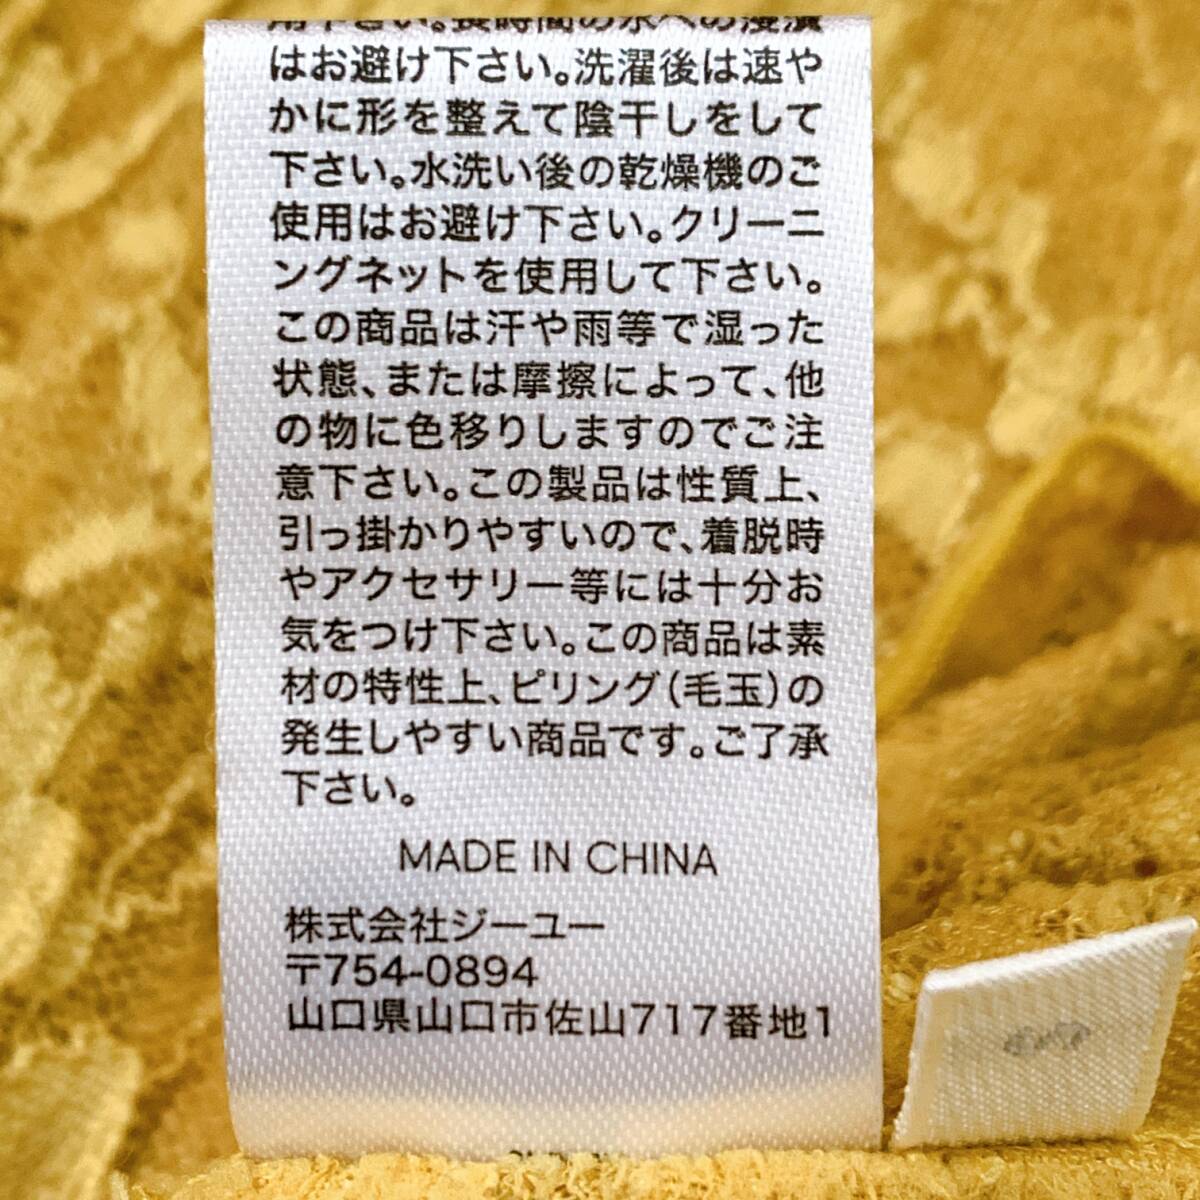 用下さい。長時間の水への浸漬
はお避け下さい。洗濯後は速や
かに形を整えて陰干しをして
下さい。水洗い後の乾燥機のご
使用はお避け下さい。クリーニ
ングネットを使用して下さい。
この商品は汗や雨等で湿った
状態、または摩擦によって、他
の物に色移りしますのでご注
意下さい。この製品は性質上、
引っ掛かりやすいので、着脱時
やアクセサリー等には十分お
気をつけ下さい。この商品は素
材の特性上、ピリング(毛玉)の
発生しやすい商品です。ご了承
下さい。
MADE IN CHINA
株式会社ジーユー
〒754-0894
山口県山口市佐山717番地1